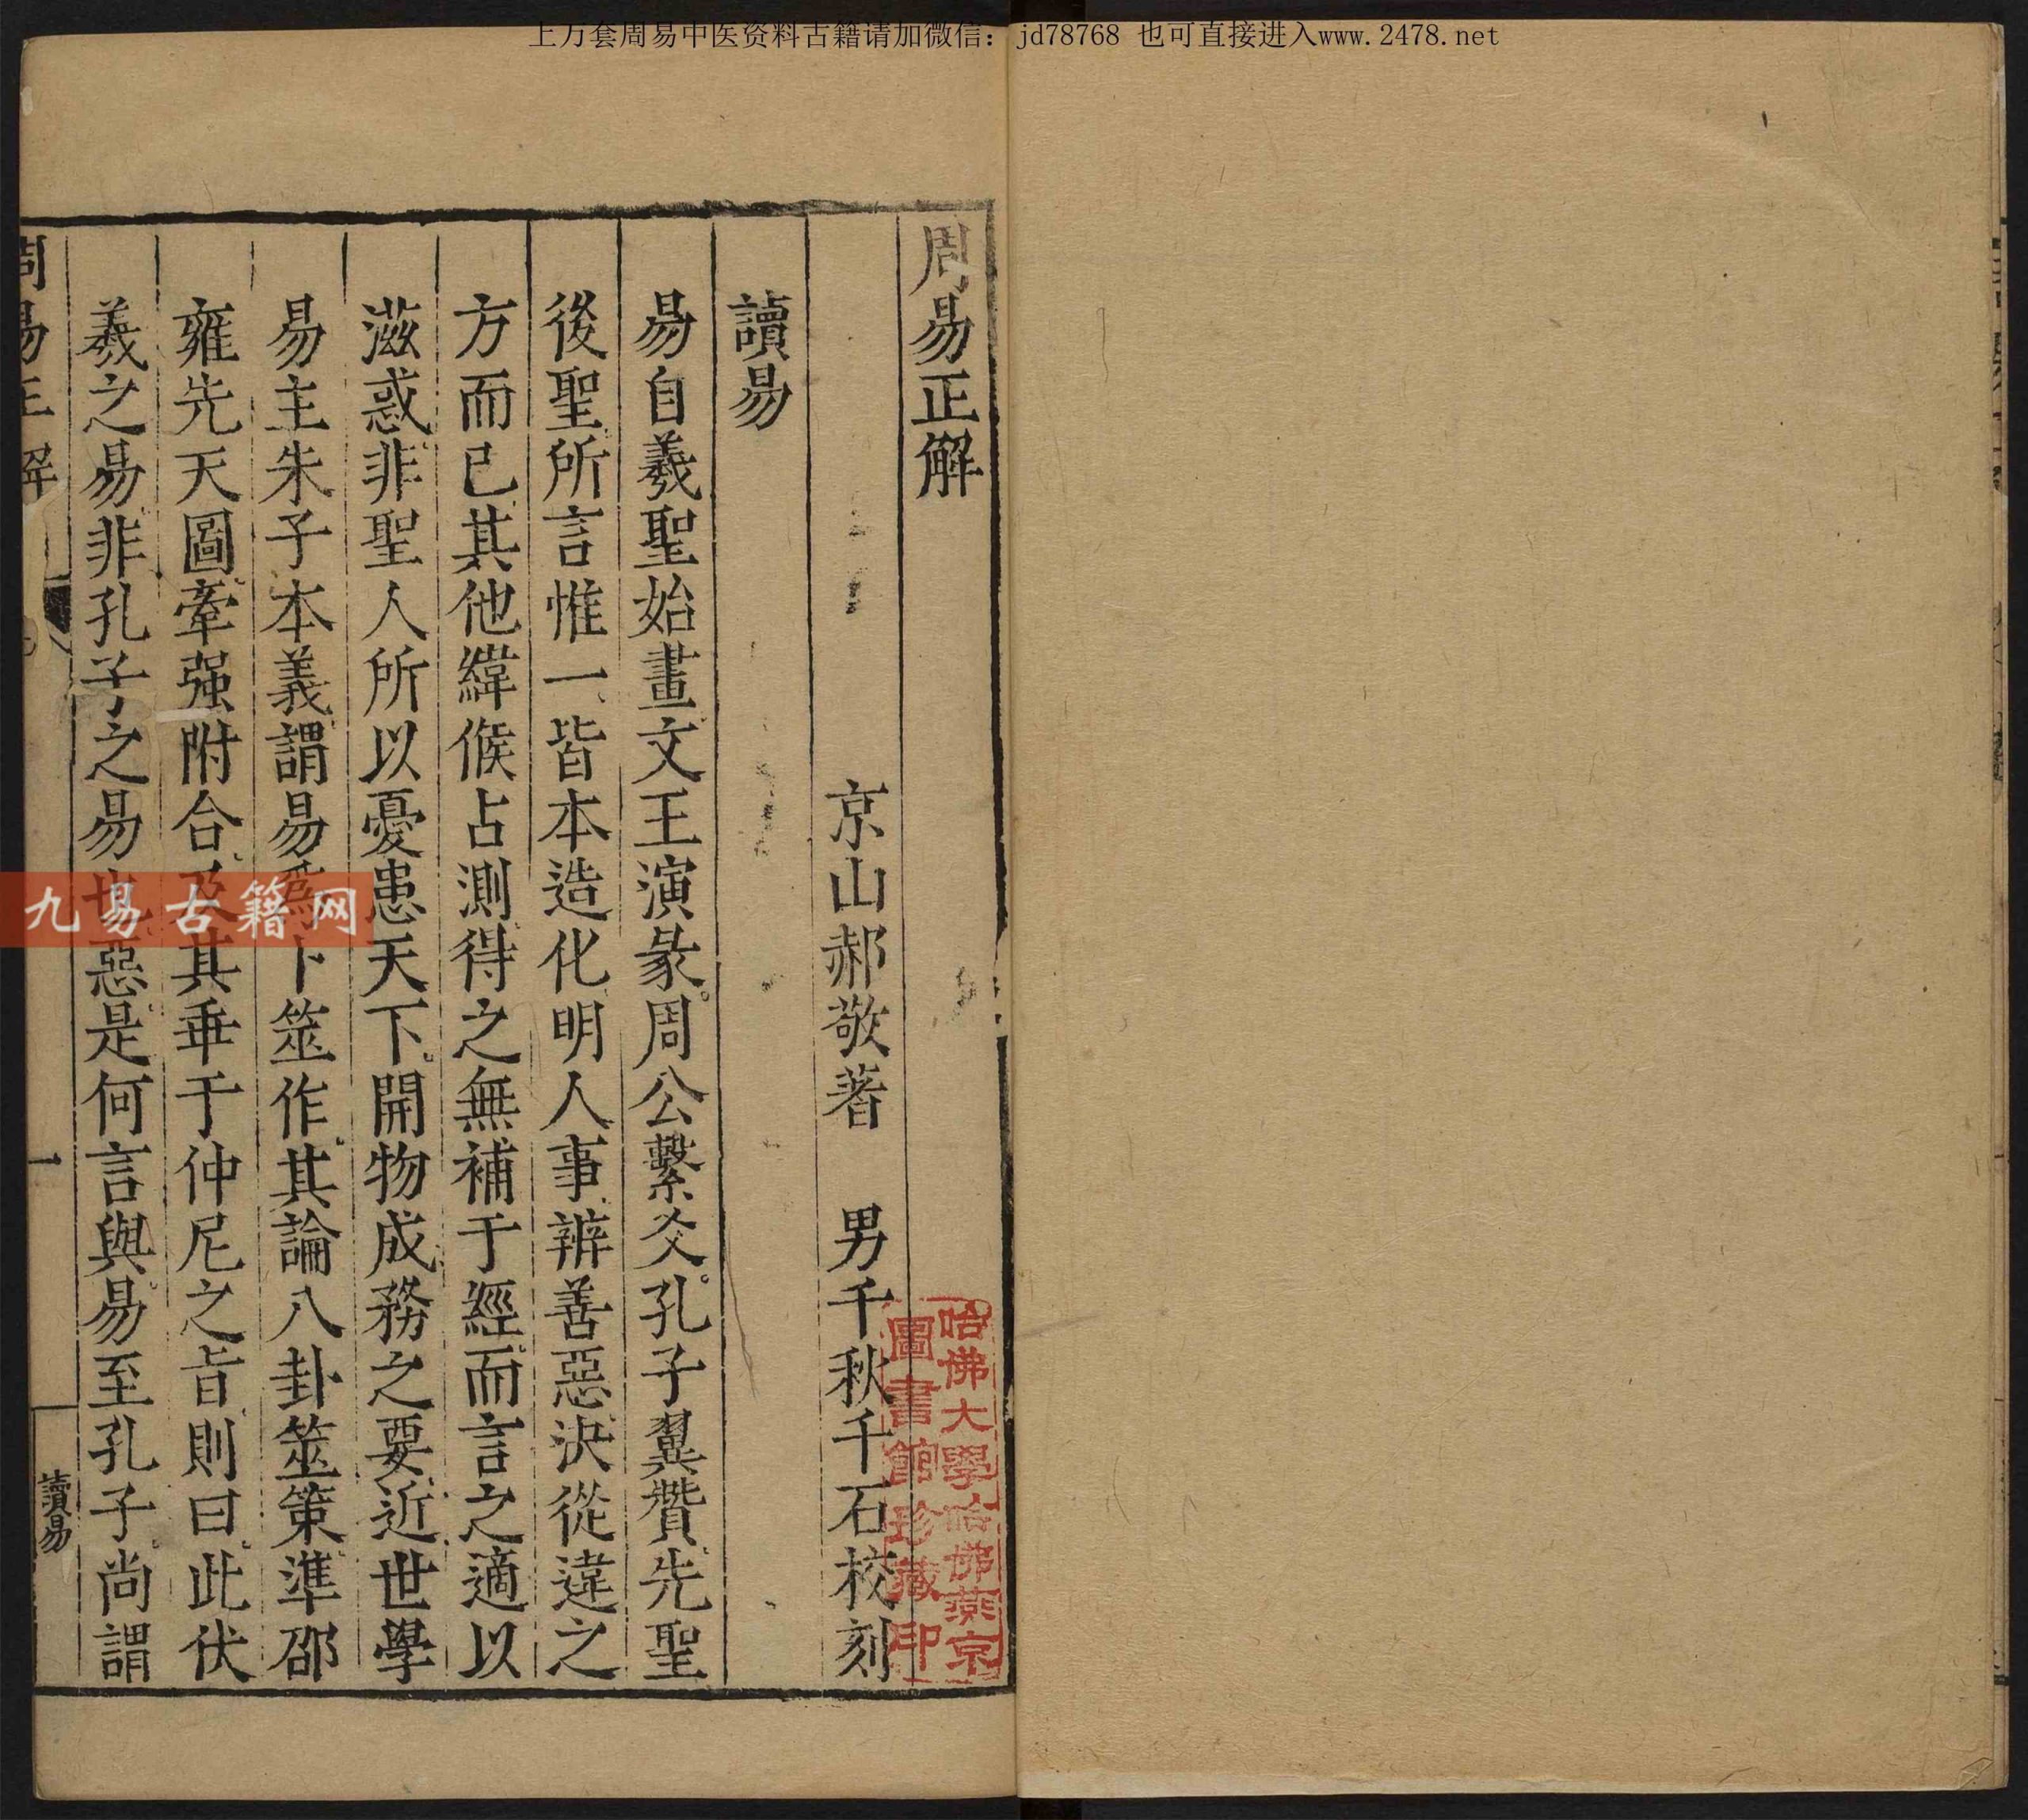 上万套周易中医资料古籍请加微信：jd78768 也可直接进入www.2478.net
周易正解
京山郝敬著 男千秋千石校刻
讀易
易自羲聖始畫文王演彖周公繫爻孔子翼贊先聖
後聖所言惟一皆本造化明人事辨善惡決從違之
方而已其他緯候占測得之無補于經而言之適以
滋惑非聖人所以憂患天下開物成務之要近世學
易主朱子本義謂易為卜筮作其論八卦筮策準邵
雍先天圖牽强附合及其乖于仲尼之旨則曰此伏
羲之易非孔子之易也惡是何言與易至孔子尚謂
周易正解
一
讀易
哈佛大學哈佛燕京
圖書館珍藏印
九易古籍网